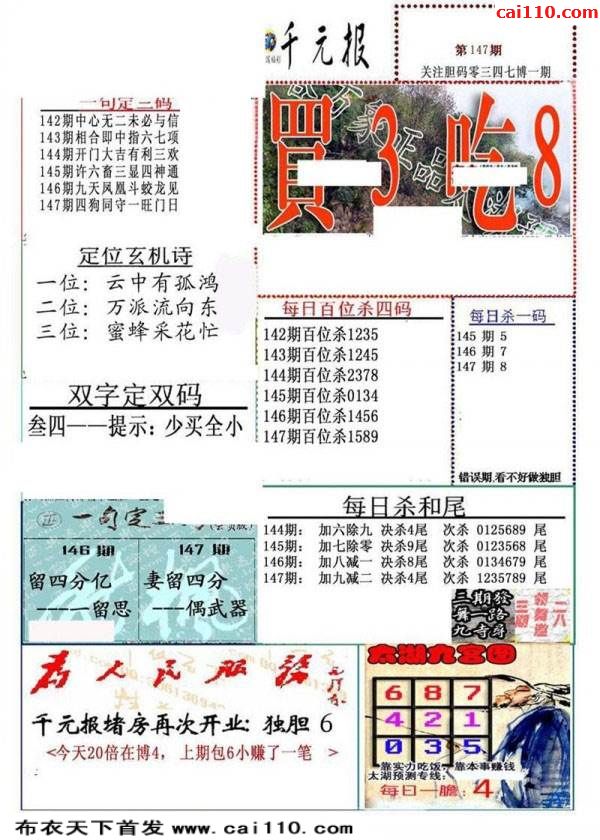 cai110.com
千元报
第147期
关注胆码零三四七博一期
一句定三码
142期中心无二未必与信
143期相合即中指六七项
144期开门大吉有利三欢
145期许六畜三显四神通
146期九天凤凰斗蛟龙见
147期四狗同守一旺门日
買3吃8
定位玄机诗
一位：云中有孤鸿
二位：万派流向东
三位：蜜蜂采花忙
每日百位杀四码
142期百位杀1235
143期百位杀1245
144期百位杀2378
145期百位杀0134
146期百位杀1456
147期百位杀1589
每日杀一码
145期 5
146期 7
147期 8
错误期.看不好做独胆
双字定双码
叁四——提示：少买全小
每日杀和尾
144期： 加六除九 决杀4尾 次杀 0125689 尾
145期： 加七除零 决杀9尾 次杀 0123568 尾
146期： 加八减一 决杀8尾 次杀 0134679 尾
147期： 加九减二 决杀4尾 次杀 1235789 尾
正
一句定三
146期
留四分亿
——留思
147期
妻留四分
——偶武器
三期發
舞一路
九寺尋
为人民服务
千元报绪房再次开业：独胆 6
<今天20倍在博4，上期包6小赚了一笔 >
太湖九宫图
6 8 7
4 2 1
0 3 5
靠实力吃饭，靠本事赚钱
太湖预测专线：
每日一胆：4
布衣天下首发 www.cai110.com